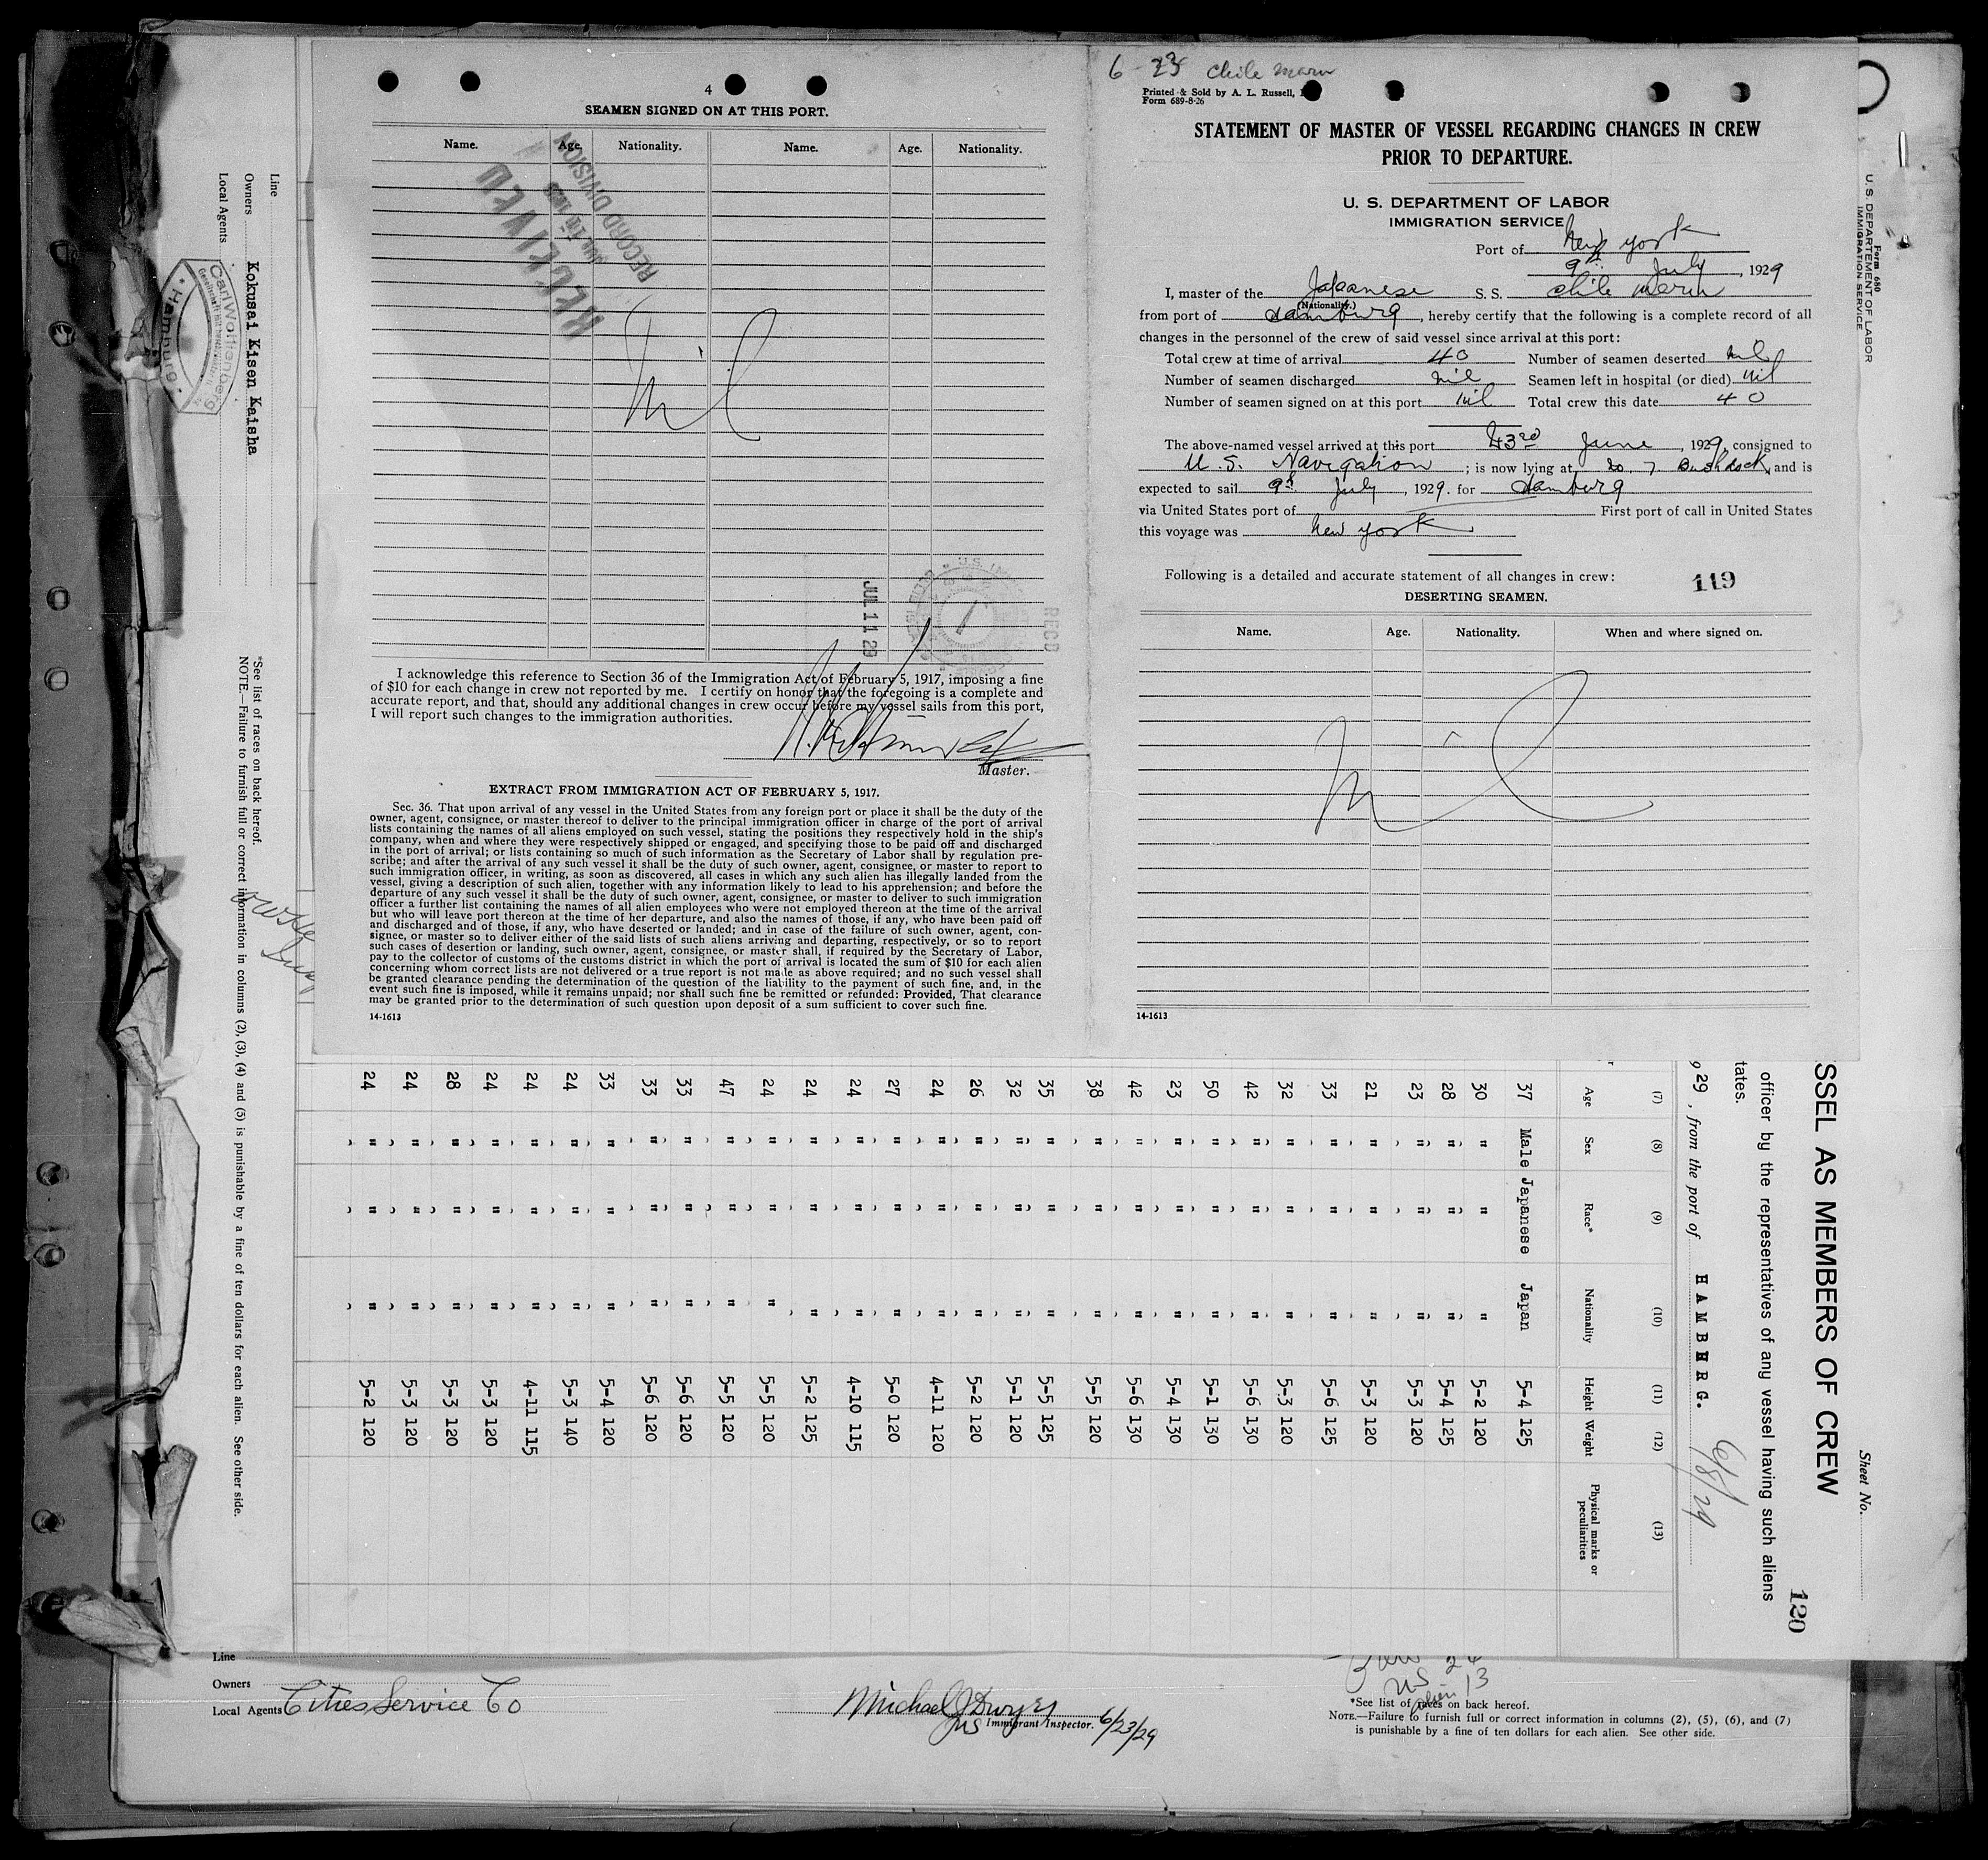 4
SEAMEN SIGNED ON AT THIS PORT.
Name. Age. Nationality. Name. Age. Nationality.
RECEIVED
RECORD DIVISION
Nil
JUL 11 29
REC'D
I acknowledge this reference to Section 36 of the Immigration Act of February 5, 1917, imposing a fine
of $10 for each change in crew not reported by me. I certify on honor that the foregoing is a complete and
accurate report, and that, should any additional changes in crew occur before my vessel sails from this port,
I will report such changes to the immigration authorities.
Master.
EXTRACT FROM IMMIGRATION ACT OF FEBRUARY 5, 1917.
Sec. 36. That upon arrival of any vessel in the United States from any foreign port or place it shall be the duty of the
owner, agent, consignee, or master thereof to deliver to the principal immigration officer in charge of the port of arrival
lists containing the names of all aliens employed on such vessel, stating the positions they respectively hold in the ship's
company, when and where they were respectively shipped or engaged, and specifying those to be paid off and discharged
in the port of arrival; or lists containing so much of such information as the Secretary of Labor shall by regulation pre-
scribe; and after the arrival of any such vessel it shall be the duty of such owner, agent, consignee, or master to report to
such immigration officer, in writing, as soon as discovered, all cases in which any such alien has illegally landed from the
vessel, giving a description of such alien, together with any information likely to lead to his apprehension; and before the
departure of any such vessel it shall be the duty of such owner, agent, consignee, or master to deliver to such immigration
officer a further list containing the names of all alien employees who were not employed thereon at the time of the arrival
but who will leave port thereon at the time of her departure, and also the names of those, if any, who have been paid off
and discharged and of those, if any, who have deserted or landed; and in case of the failure of such owner, agent, con-
signee, or master so to deliver either of the said lists of such aliens arriving and departing, respectively, or so to report
such cases of desertion or landing, such owner, agent, consignee, or master shall, if required by the Secretary of Labor,
pay to the collector of customs of the customs district in which the port of arrival is located the sum of $10 for each alien
concerning whom correct lists are not delivered or a true report is not made as above required; and no such vessel shall
be granted clearance pending the determination of the question of the liability to the payment of such fine, and, in the
event such fine is imposed, while it remains unpaid; nor shall such fine be remitted or refunded: Provided, That clearance
may be granted prior to the determination of such question upon deposit of a sum sufficient to cover such fine.
14-1613
6-23 Chile Maru
Printed & Sold by A. L. Russell,
Form 689-8-26
STATEMENT OF MASTER OF VESSEL REGARDING CHANGES IN CREW
PRIOR TO DEPARTURE.
U. S. DEPARTMENT OF LABOR
IMMIGRATION SERVICE
Port of New York
9th July, 1929
I, master of the Japanese S. S. Chile Maru
(Nationality.)
from port of Hamburg, hereby certify that the following is a complete record of all
changes in the personnel of the crew of said vessel since arrival at this port:
Total crew at time of arrival 40 Number of seamen deserted nil
Number of seamen discharged nil Seamen left in hospital (or died) nil
Number of seamen signed on at this port nil Total crew this date 40
The above-named vessel arrived at this port 23rd June, 1929, consigned to
U. S. Navigation; is now lying at 7 Bush dock, and is
expected to sail 9th July, 1929. for Hamburg
via United States port of First port of call in United States
this voyage was New York
Following is a detailed and accurate statement of all changes in crew:
119
DESERTING SEAMEN.
Name. Age. Nationality. When and where signed on.
Nil
14-1613
Form 680
U. S. DEPARTMENT OF LABOR
IMMIGRATION SERVICE
Sheet No.
120
SSEL AS MEMBERS OF CREW
officer by the representatives of any vessel having such aliens
tates.
29, from the port of HAMBURG. 6/8/29
(7) (8) (9) (10) (11) (12) (13)
Age Sex Race* Nationality Height Weight Physical marks or peculiarities
37 Male Japanese Japan 5-4 125
30 " " " 5-2 120
28 " " " 5-4 125
23 " " " 5-3 120
21 " " " 5-3 120
33 " " " 5-6 125
32 " " " 5-3 120
42 " " " 5-6 130
50 " " " 5-1 130
23 " " " 5-4 130
42 " " " 5-6 130
38 " " " 5-5 120
35 " " " 5-5 125
32 " " " 5-1 120
26 " " " 5-2 120
24 " " " 4-11 120
27 " " " 5-0 120
24 " " " 4-10 115
24 " " " 5-2 125
24 " " " 5-5 120
47 " " " 5-5 120
33 " " " 5-6 120
33 " " " 5-6 120
33 " " " 5-4 120
24 " " " 5-3 140
24 " " " 4-11 115
24 " " " 5-3 120
28 " " " 5-3 120
24 " " " 5-3 120
24 " " " 5-2 120
Line
Owners Kokusai Kisen Kaisha
Local Agents
Carl Wolttenberg
Hamburg
*See list of races on back hereof.
NOTE.—Failure to furnish full or correct information in columns (2), (3), (4) and (5) is punishable by a fine of ten dollars for each alien. See other side.
Line
Owners
Local Agents Cities Service Co
Michael J Dwyer
Immigrant Inspector. 6/23/29
US 13
alien
*See list of races on back hereof.
NOTE.—Failure to furnish full or correct information in columns (2), (5), (6), and (7)
is punishable by a fine of ten dollars for each alien. See other side.